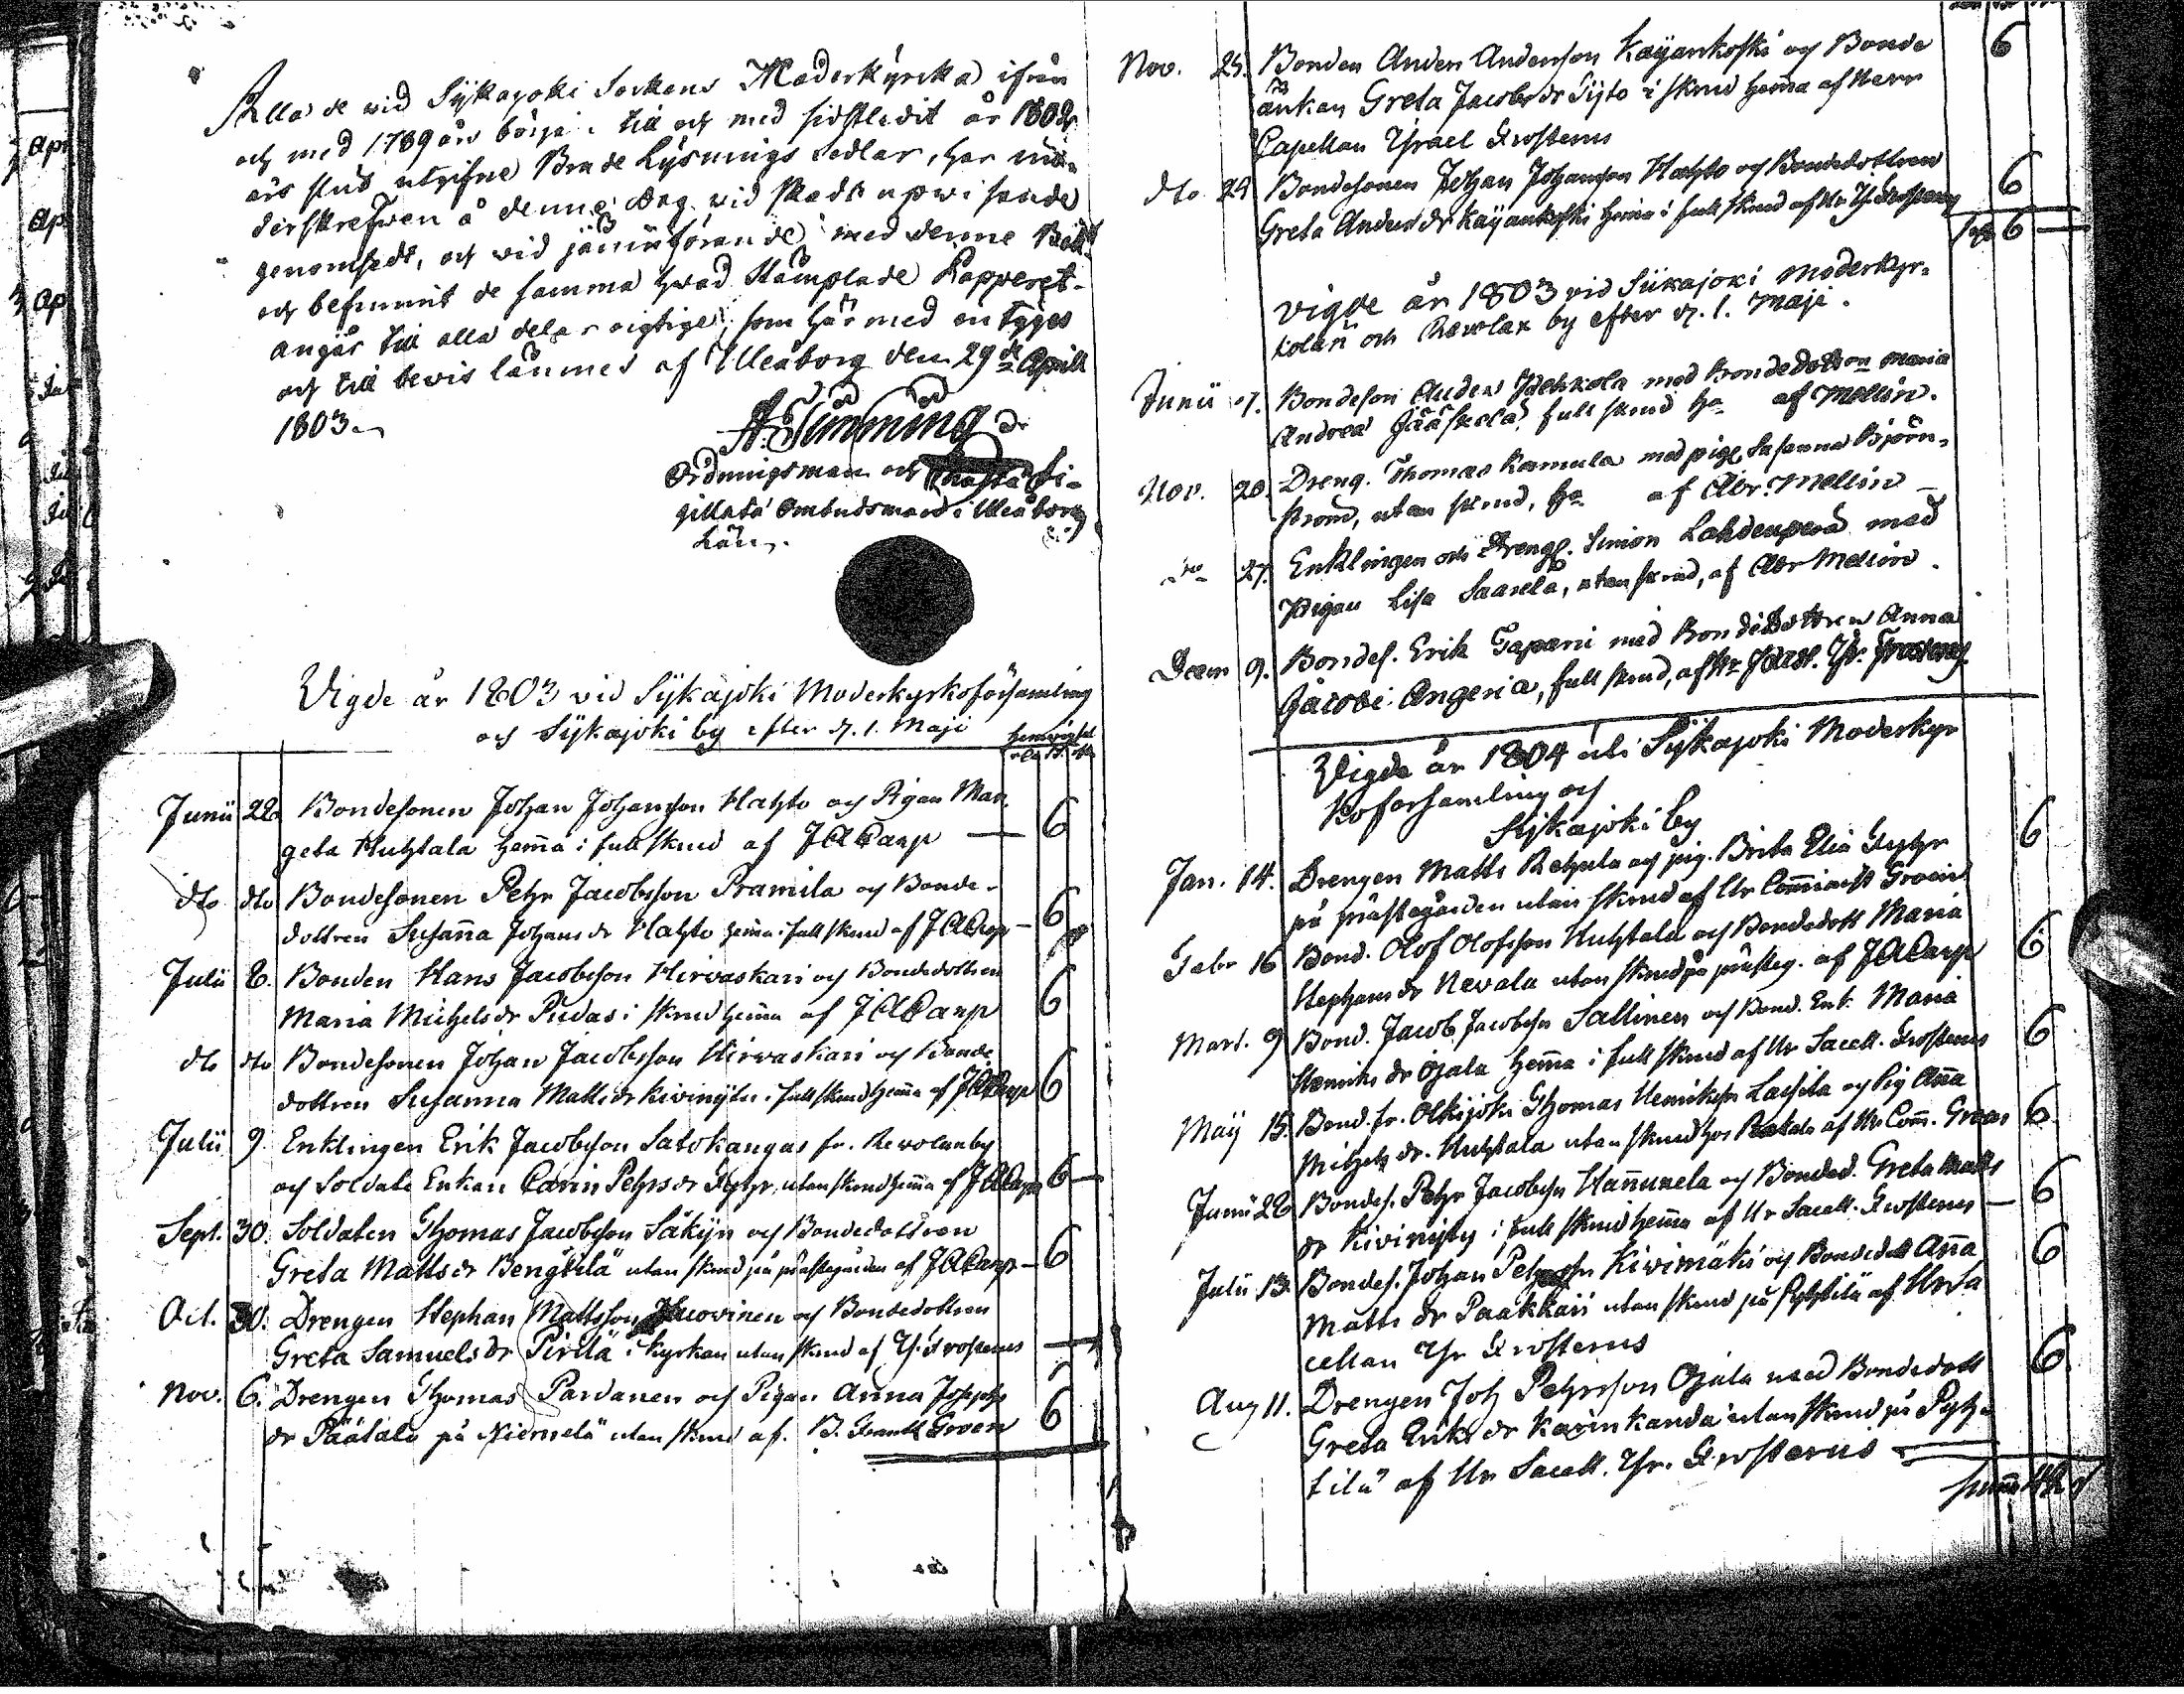 Alla de vid Sijkajoki Sockens Moderkyrcka ifrån
och med 1789 års början till och med sidstledit år 1802
års slut utgifne Brude Lysnings Sedlar, har un-
derskrefwen å denne dag vid skedt upwisande
genomsedt, och vid jämnförande med denne Bok
och befunnit de samma hwad Stämplade Papperet
angår till alla delar rigtige, som här med intyges
och till bewis lämnes af Uleåborg den 29de Aprill
1803
Ordningsman och
gillata Ombudsman i Uleåborgs
Län.
Vigde år 1803 vid Sijkajoki Moderkyrkoförsamling
och Sijkajoki by efter d. 1. Maji
Junii 22 Bondesonen Johan Johansson Hahto och Pigan Mar
geta Huhtala hem̄a i full skrud af J A Carp 6
dto dto Bondesonen Pehr Jacobsson Pramila och Bonde-
dottren Susan̄a Johans dr Hahto hem̄a i full skrud af J A Carp 6
Julii 8. Bonden Hans Jacobsson Hirvaskari och Bondedottren
Maria Michels dr Pudas i skrud hem̄a af J A Carp 6
dto dto Bondesonen Johan Jacobsson Hirvaskari och Bonde
dottren Susanna Matts dr Kivinijty i full skrud hem̄a af J A Carp 6
Julii 9 Enklingen Erik Jacobsson Satokangas fr. Revolax by
och Soldats Enkan Carin Pehrs dr utan skrud hem̄a af J A Carp 6
Sept. 30. Soldaten Thomas Jacobsson Säkijn och Bondedottren
Greta Matts dr Bengtilä utan skrud på prästegården af J A Carp 6
Oct. 30. Drengen Stephan Mattsson Juovinen och Bondedottren
Greta Samuels dr Pirilä i kyrkan utan skrud af Is. Frosterus
Nov. 6. Drengen Thomas Pardanen och Pigan Anna Josephs
dr Päätalo på Niemelä utan skrud af. B. Groen 6
Nov. 25. Bonden Anders Andersson Käyänkoski och Bonde
änkan Greta Jacobs dr Sijto i skrud hem̄a af Herr
Capellan Israel Frosterus 6
dto 29 Bondesonen Johan Johansson Hahto och Bondedottren
Greta Anders dr Käyänkoski hem̄a i full skrud af Hr Is. Frosterus 6
Vigde år 1803 vid Siikajoki Moderkyr-
kolän och Revolax by efter d. 1. Maji.
Junii 17. Bondeson Anders med Bondedotren Maria
Andrea Jääskelä, full skrud af Mellin.
Nov. 20. Dreng. Thomas Ramula med pig. Susanna Björn-
ström, utan skrud, af Abr. Mellin
do 27. Enklingen och Dreng. Simon Lahdenperä med
Pigan Lisa Saarela, utan skrud, af Abr Mellin.
Decem 9. Bondes. Erik Tapani med Bondedottren Anna
Jacobi Angeria, full skrud, af Hr Sacell. Isr. Frosterus
Vigde år 1804 uti Sijkajoki Moderkyr
koforsamling och
Sijkajoki by
Jan. 14. Drengen Matts och pig. Brita Elia
på prästegården utan skrud af Hr Groen 6
Febr 16 Bond. Olof Olofsson Huhtala och Bondedott Maria
Stephans dr Nevala utan skrud på prästeg. af J A Carp 6
Mart. 9 Bond. Jacob Jacobsson Sallinen och Bond. Enk. Maria
Henriks dr Ojala hem̄a i full skrud af Hr Sacell. Frosterus 6
Maij 15. Bond. fr. Olkijoki Thomas Henriksn och Pig An̄a
Michels dr. Huhtala utan skrud hos af Hr Com̄. 6
Junii 22 Bondes. Pehr Jacobsn Han̄unela och Bonded. Greta Matts
dr Kivinijty i full skrud hem̄a af Hr Sacell. Frosterus 6
Julii 13. Bondes. Johan Kivimäki och Bondedott An̄a
Matts dr Paakkari utan skrud på Pyhtilä af Hr Ca
cellan Isr Frosterus 6
Aug 11. Drengen Joh Pehrsson Ojala med Bondedott
Greta Eriks dr Karinkanda utan skrud på Pyh-
tilä af Hr Sacell. Isr. Frosterus 6